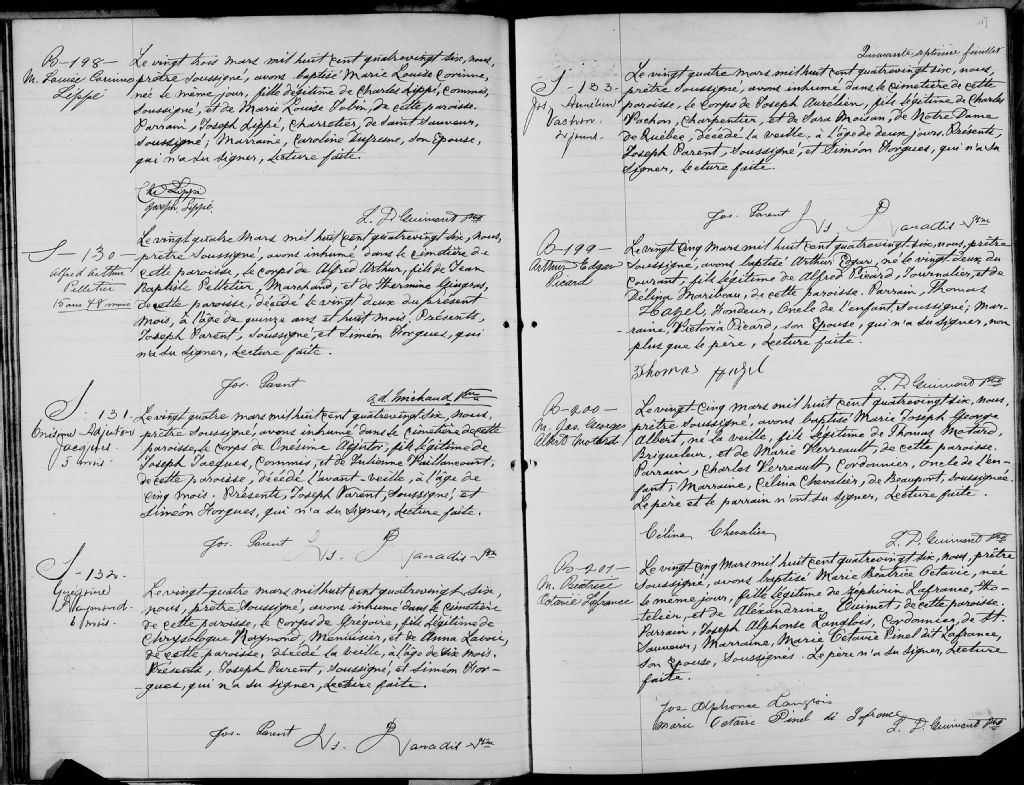 B - 198 -
M. Louise Corinne
Lippé
Le vingt trois mars mil huit cent quatrevingt six, nous,
prêtre soussigné, avons baptisé Marie Louise Corinne,
née le même jour, fille légitime de Charles Lippé, commis,
soussigné, et de Marie Louise Tobin, de cette paroisse.
Parrain, Joseph Lippé, Charretier, de Saint Sauveur,
soussigné; Marraine, Caroline Dufresne, son Epouse,
qui n'a su signer, Lecture faite.
Chs Lippé
Joseph Lippé.
L. P. Guimond Ptre
S - 130 -
Alfred Arthur
Pelletier
15 ans & 8 mois
Le vingt quatre mars mil huit cent quatrevingt six, nous,
prêtre soussigné, avons inhumé dans le cimetière de
cette paroisse, le corps de Alfred Arthur, fils de Jean
Baptiste Pelletier, Marchand, et de Hermine Gingras,
de cette paroisse, décédé le vingt deux du présent
mois, à l'âge de quinze ans et huit mois. Présents,
Joseph Parent, soussigné, et Siméon Horgues, qui
n'a su signer, Lecture faite.
Jos. Parent
Ad. Michaud Ptre
S - 131.
Onésime Adjutor
Jacques.
5 mois.
Le vingt quatre mars mil huit cent quatrevingt six, nous,
prêtre soussigné, avons inhumé dans le cimetière de cette
paroisse, le corps de Onésime Adjutor, fils légitime de
Joseph Jacques, Commis, et de Julienne Vaillancourt,
de cette paroisse, décédé l'avant-veille, à l'âge de
cinq mois. Présents, Joseph Parent, soussigné, et
Siméon Horgues, qui n'a su signer, Lecture faite.
Jos. Parent
Ls. Paradis Ptre
S - 132.
Grégoire
Raymond.
6 mois.
Le vingt quatre mars mil huit cent quatrevingt six,
nous, prêtre soussigné, avons inhumé dans le cimetière
de cette paroisse, le corps de Grégoire, fils légitime de
Chrysologue Raymond, Menuisier, et de Anna Lavoie,
de cette paroisse, décédé la veille, à l'âge de six mois.
Présents, Joseph Parent, soussigné, et Siméon Hor-
gues, qui n'a su signer, Lecture faite.
Jos. Parent
Ls. Paradis Ptre
Quarante septième feuillet
S - 133
Jos. Aurélien
Vachon
2 jours.
Le vingt quatre mars mil huit cent quatrevingt six, nous,
prêtre soussigné, avons inhumé dans le cimetière de cette
paroisse, le corps de Joseph Aurélien, fils légitime de Charles
Vachon, Charpentier, et de Sara Moisan, de Notre Dame
de Québec, décédé la veille, à l'âge de deux jours. Présents,
Joseph Parent, soussigné, et Siméon Horgues, qui n'a su
signer, Lecture faite.
Jos. Parent
Ls. Paradis Ptre
B - 199 -
Arthur Edgar
Picard
Le vingt cinq mars mil huit cent quatrevingt six, nous, prêtre
soussigné, avons baptisé Arthur Edgar, né le vingt deux du
courant, fils légitime de Alfred Picard, Journalier, et de
Délina Maribeau, de cette paroisse. Parrain, Thomas
Hazel, Fondeur, Oncle de l'enfant, soussigné; Mar-
raine, Victoria Picard, son Epouse, qui n'a su signer, non
plus que le père, Lecture faite.
Thomas Hazel
L. P. Guimond Ptre
B - 200 -
M. Jos. Georges
Albert Matard
Le vingt cinq mars mil huit cent quatrevingt six, nous,
prêtre soussigné, avons baptisé Marie Joseph George
Albert, né la veille, fils légitime de Thomas Matard,
Briqueleur, et de Marie Verreault, de cette paroisse.
Parrain, Charles Verreault, Cordonnier, oncle de l'en-
fant; Marraine, Célina Chevalier, de Beauport, soussignée.
Le père et le parrain n'ont su signer, Lecture faite.
Célina Chevalier
L. P. Guimond Ptre
B - 201 -
M. Béatrice
Octavie Lafrance
Le vingt cinq mars mil huit cent quatrevingt six, nous, prêtre
soussigné, avons baptisé Marie Béatrice Octavie, née
le même jour, fille légitime de Zéphirin Lafrance, Hô-
telier, et de Alexandrine Ouimet, de cette paroisse.
Parrain, Joseph Alphonse Langlois, Cordonnier, de St.
Sauveur; Marraine, Marie Octavie Pinel dit Lafrance,
son Epouse, soussignés. Le père n'a su signer, Lecture
faite.
Jos Alphonse Langlois
Marie Octavie Pinel di Lafrance
L. P. Guimond Ptre